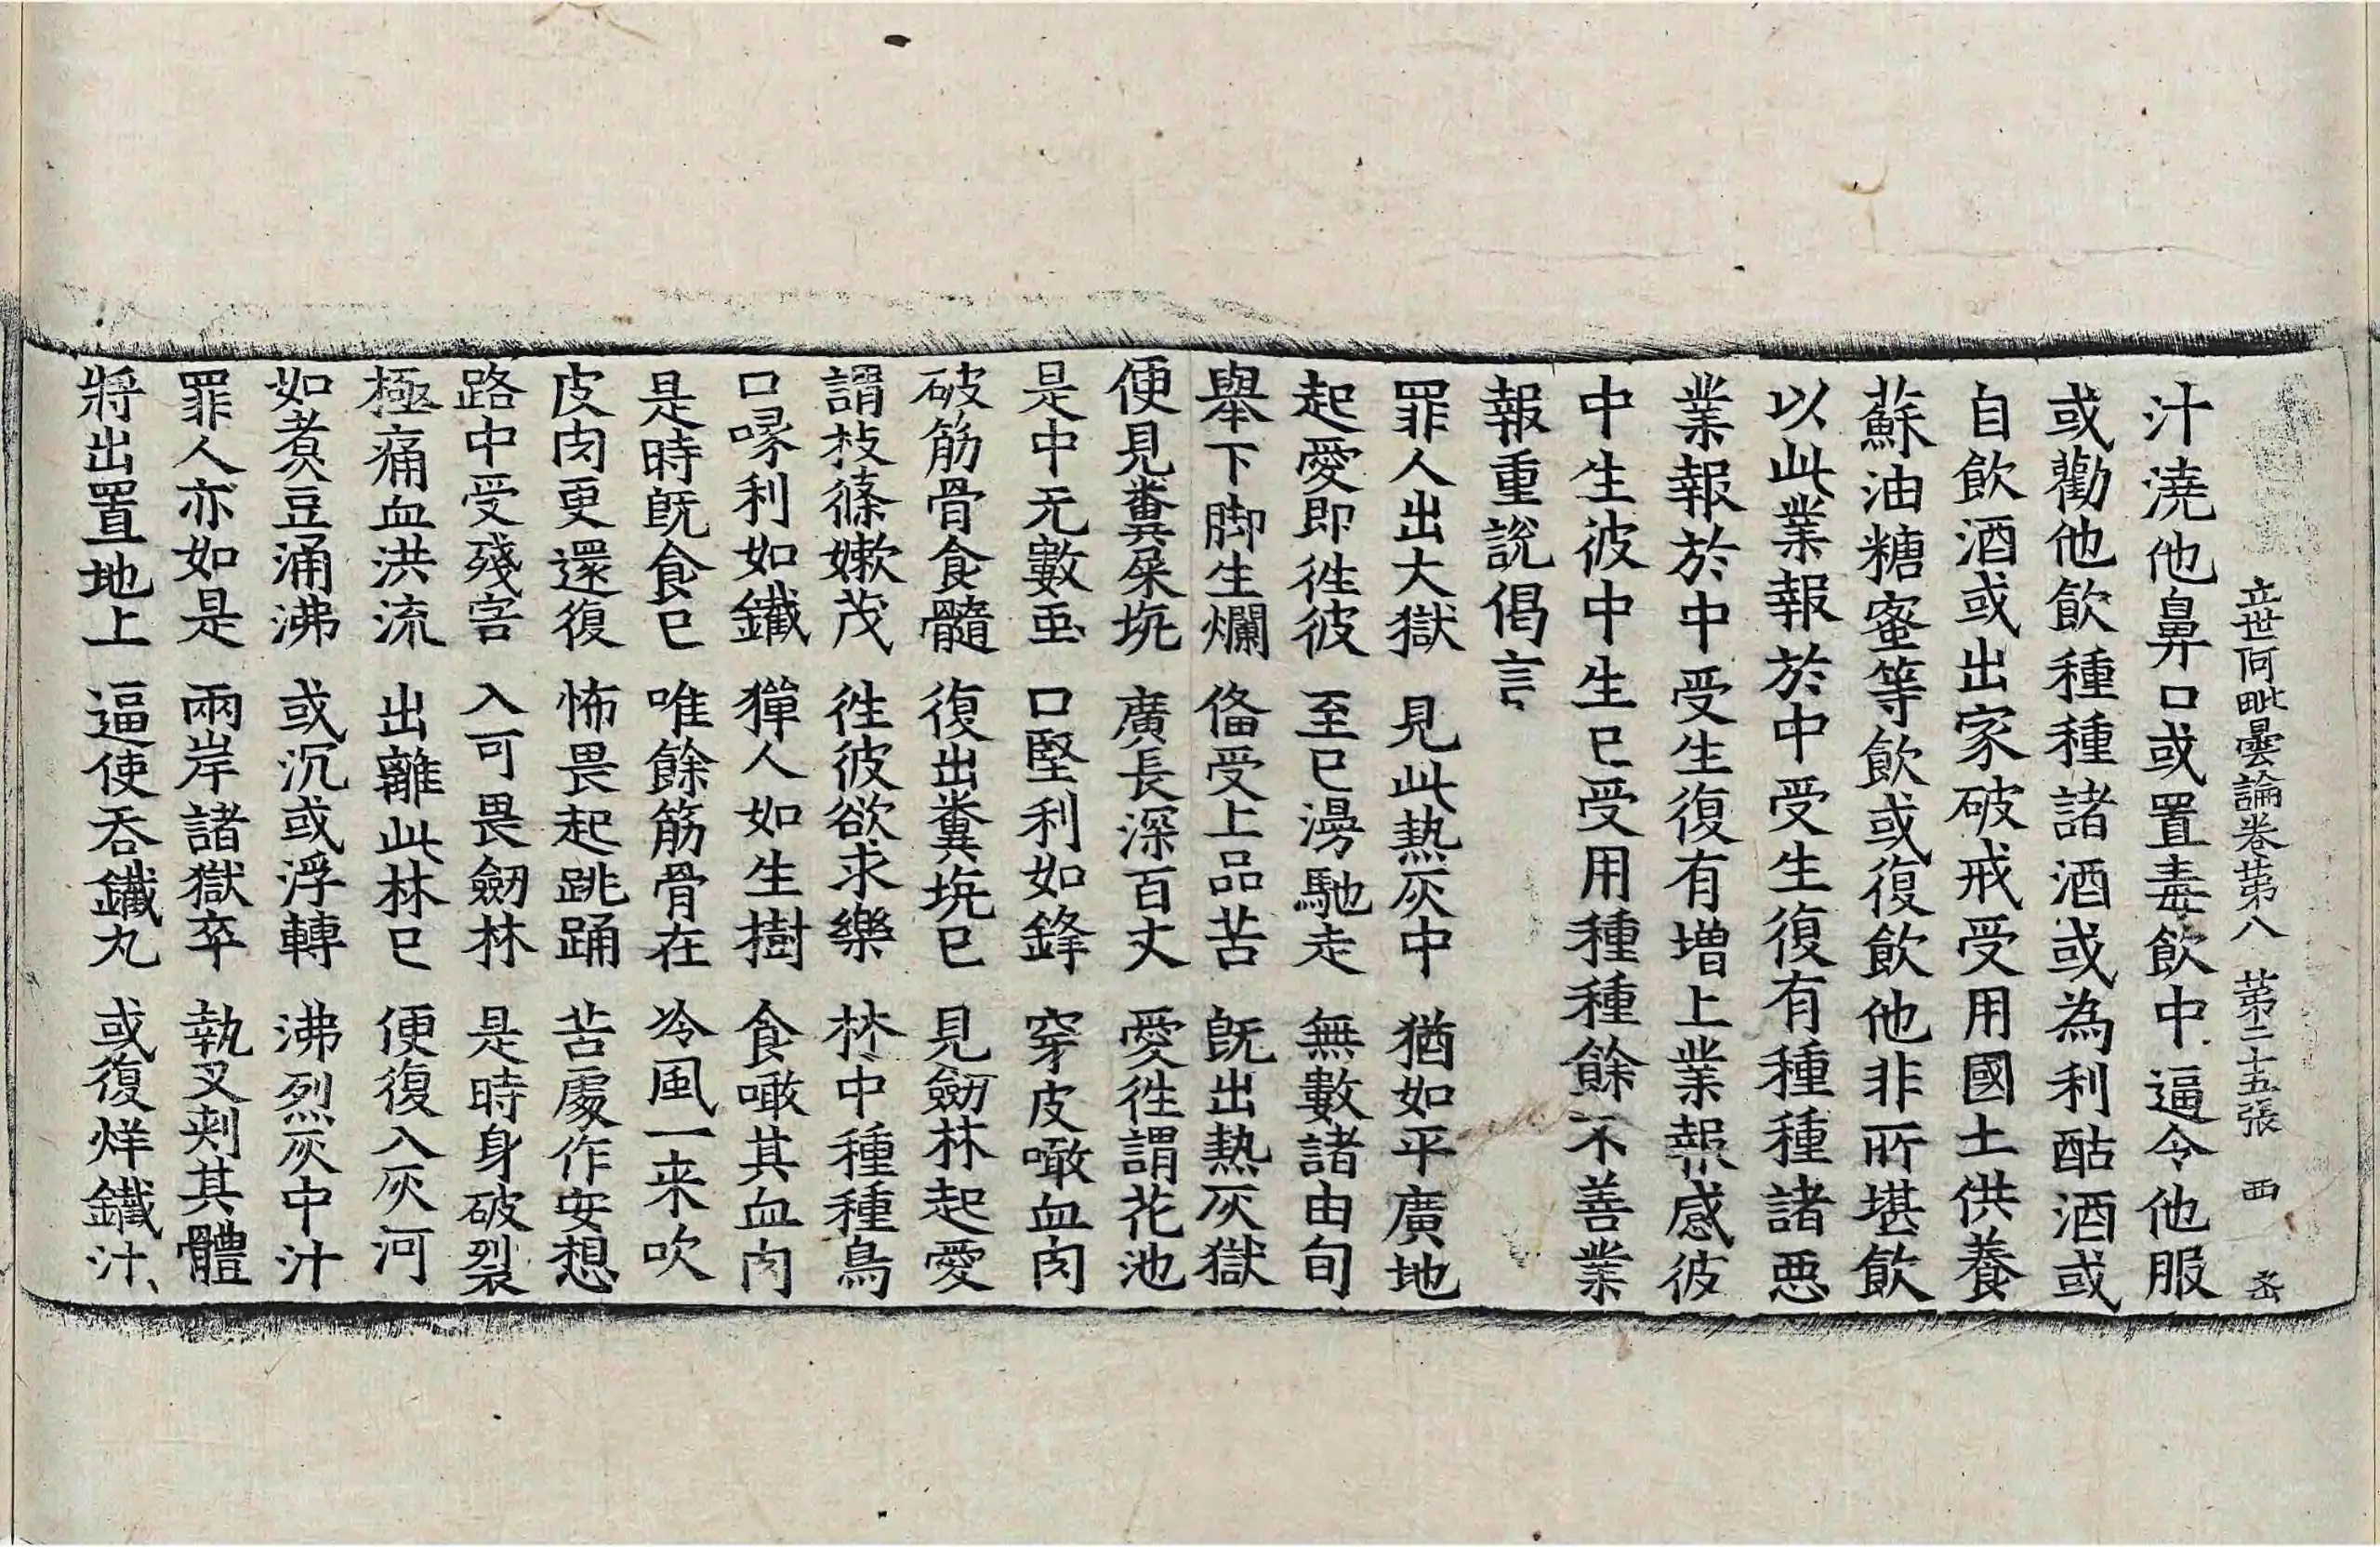 立世阿毗曇論卷苐八 苐二十五張 西
汁澆他鼻口或置毒飲中逼令他服
或勸他飲種種諸酒或為利酤酒或
自飲酒或出家破戒受用國土供養
蘇油糖蜜等飲或復飲他非所堪飲
以此業報於中受生復有種種諸惡
業報於中受生復有增上業報感彼
中生彼中生已受用種種餘不善業
報重說偈言
罪人出大獄 見此熱灰中 猶如平廣地
起愛即徃彼 至已漫馳走 無數諸由旬
舉下脚生爛 俻受上品苦 旣出熱灰獄
便見糞屎坑 廣長深百丈 愛徃謂花池
是中无數虫 口堅利如鋒 穿皮噉血肉
破筋骨食髓 復出糞坑已 見劒林起愛
謂枝蓧嫩茂 徃彼欲求樂 林中種種鳥
口喙利如鐵 獋人如生樹 食噉其血肉
是時旣食已 唯餘筋骨在 冷風一来吹
皮肉更還復 怖畏起跳踊 苦處作安想
路中受殘害 入可畏劒林 是時身破裂
極痛血洪流 出離此林已 便復入灰河
如煮豆涌沸 或沉或浮轉 沸烈灰中汁
罪人亦如是 兩岸諸獄卒 執叉刾其體
將出置地上 逼使吞鐵丸 或復烊鐵汁